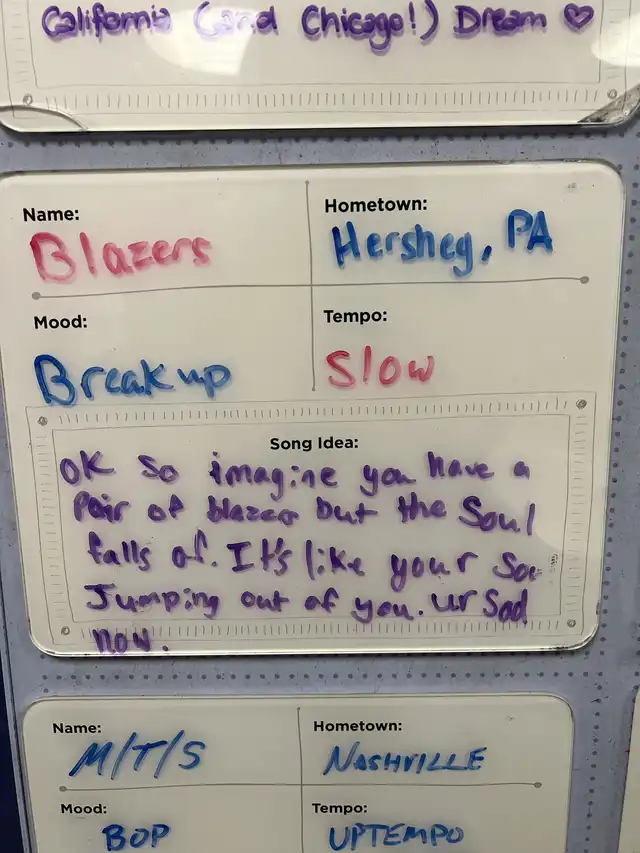 California (and Chicago!) Dream ♡
Name:
Blazers
Hometown:
Hershey, PA
Mood:
Breakup
Tempo:
Slow
Song Idea:
OK So imagine you have a
Pair of blazers but the Soul
falls of. It's like your
Jumping out of you. ur Sad
now.
Name:
M/T/S
Hometown:
NASHVILLE
Mood:
BOP
Tempo:
UPTEMPO